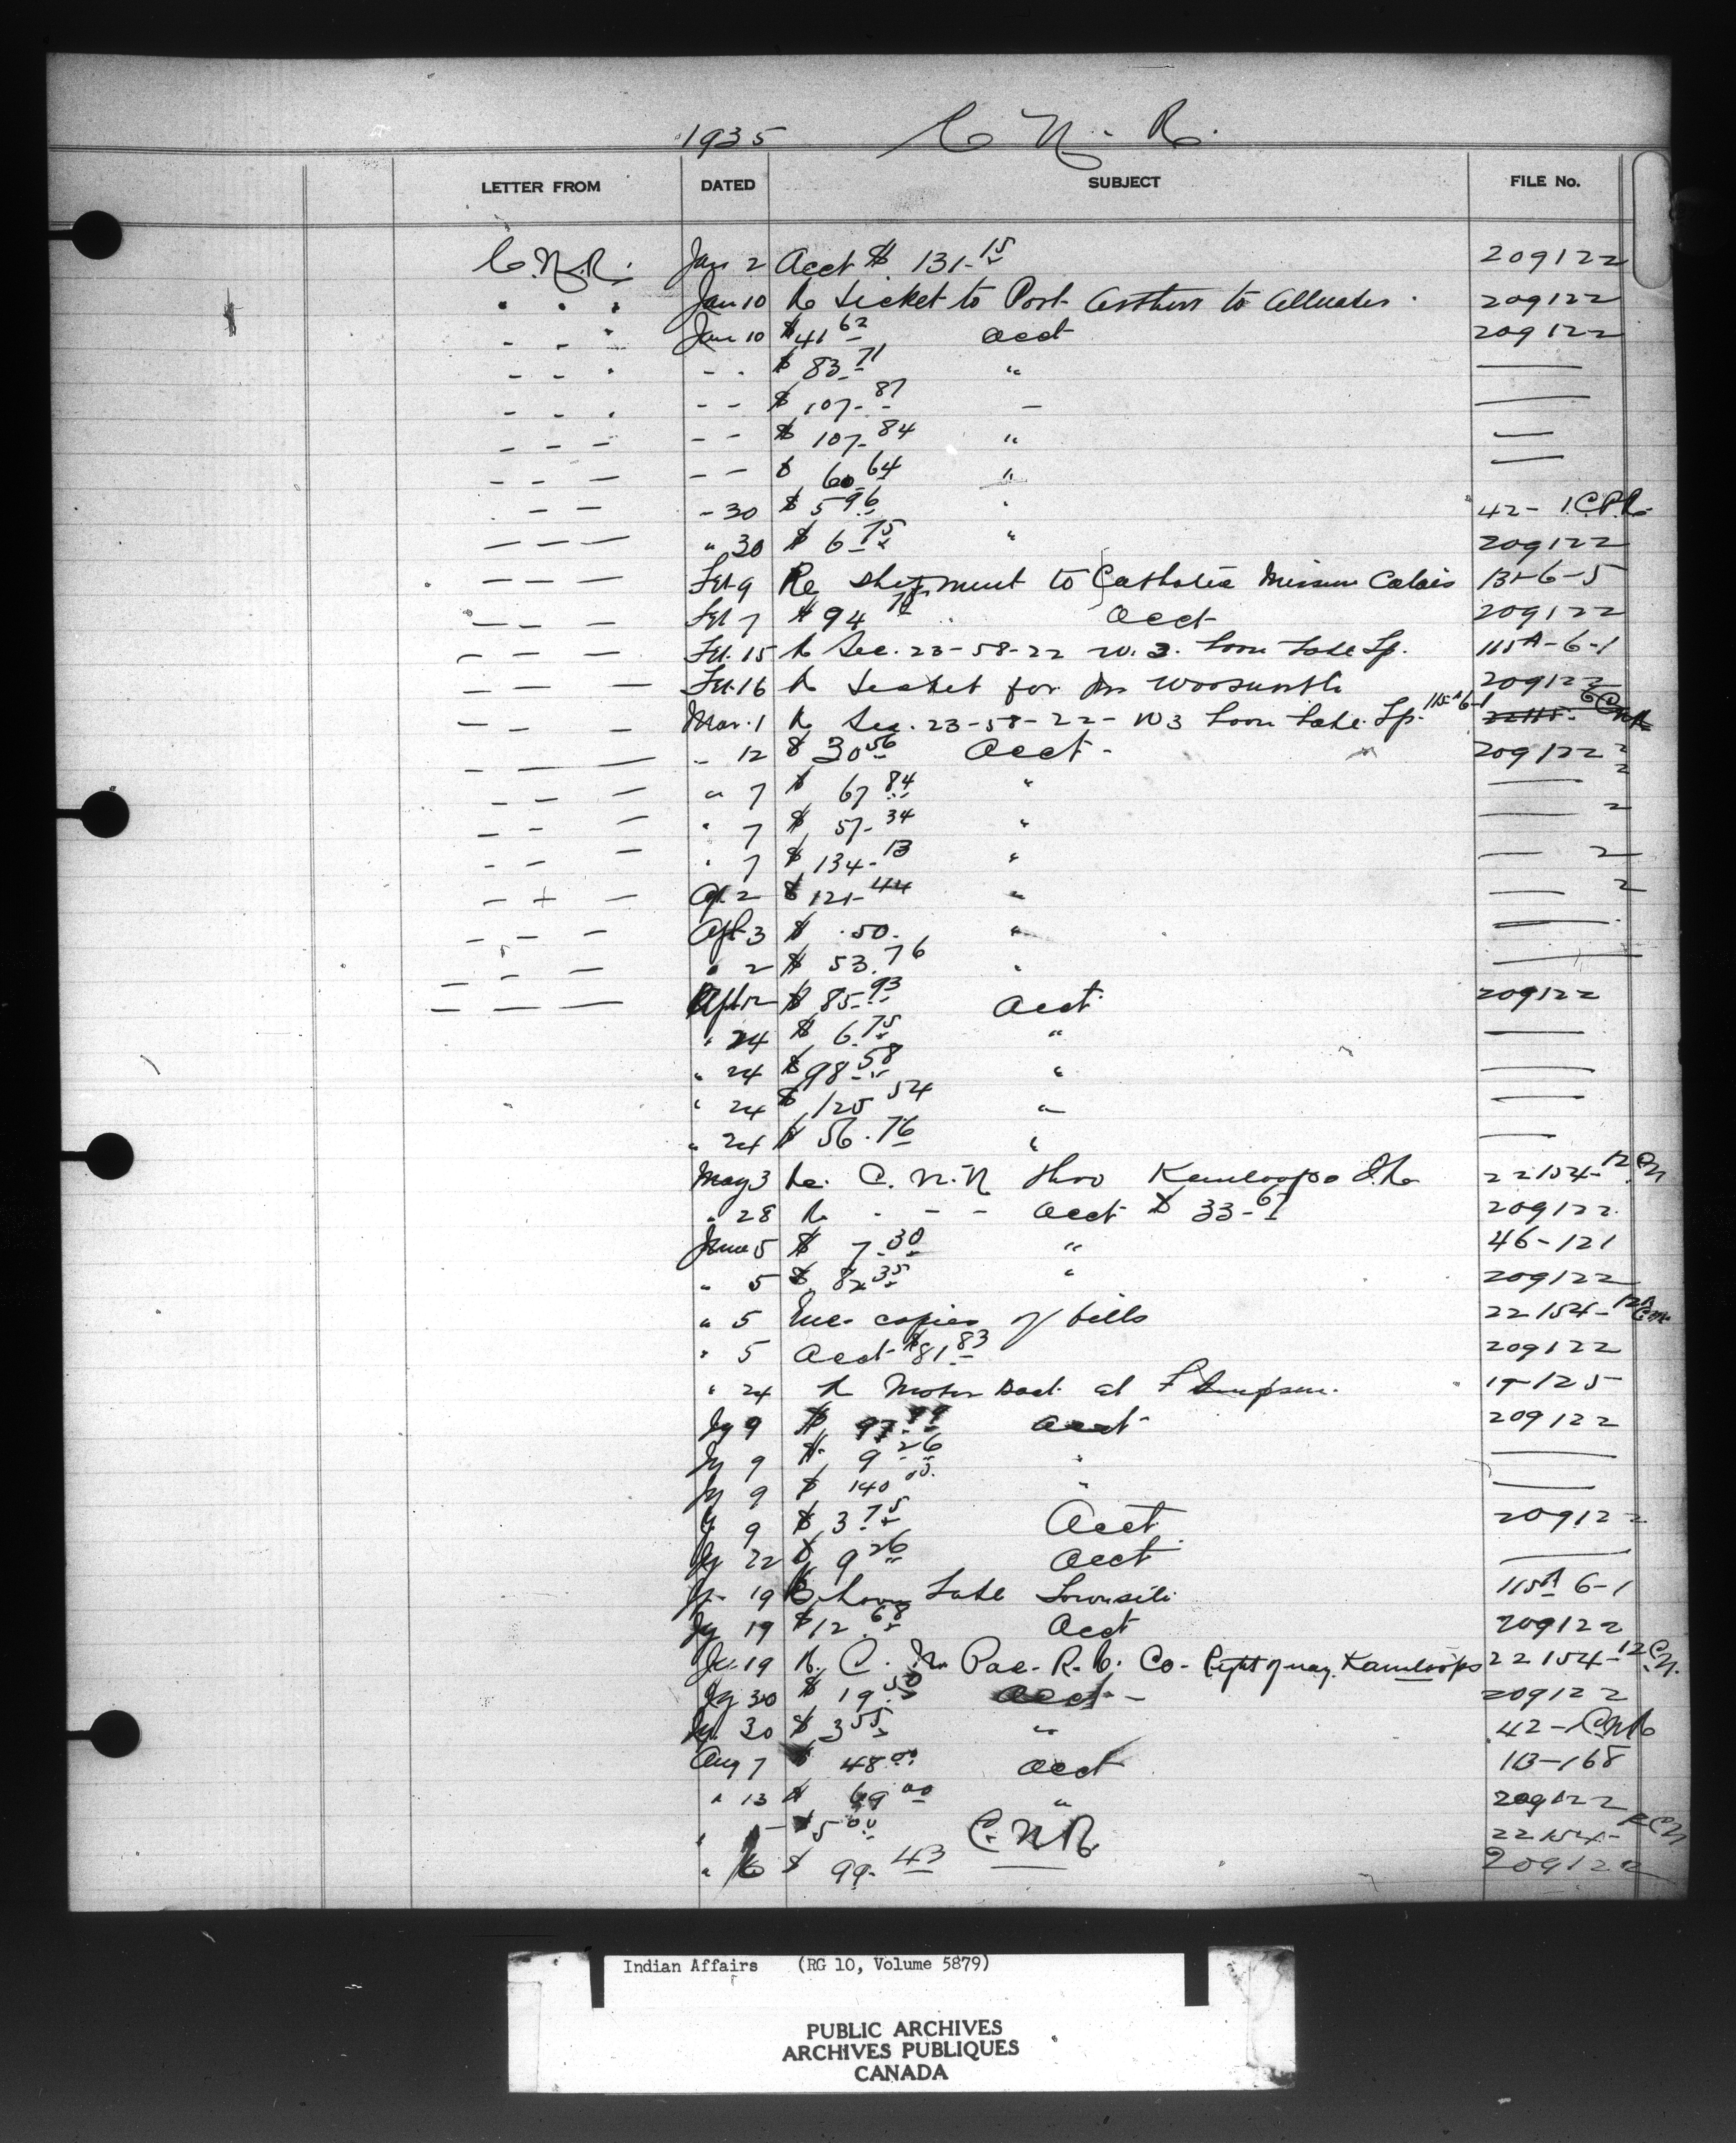 1935 C. N. R.
LETTER FROM DATED SUBJECT FILE No.
C.N.R. Jan 2 Acct $ 131-15 209122
" " " Jan 10 Re ticket to Port Arthur to 209122
- - " Jan 10 $41 62 Acct 209122
- - - - - $ 83-71 " —
- - - - - $ 107-87 - —
- - - - - $ 107-84 " —
- - - - - $ 60 64 " —
- - - 30 $ 5 96 " 42-1 C.P.R.
- - - " 30 $ 6 75 " 209122
- - - Feb 9 Re shipment to Catholic Mission Calais 131-6-5
- - - Feb 7 $ 94 Acct 209122
- - - Feb. 15 Re Sec. 23-58-22 W. 3. Loon Lake Sp. 115A-6-1
- - - Feb. 16 Re ticket for Dr Woodsworth 209122
- - - Mar. 1 Re Sec. 23-58-22-W3 Loon Lake Sp. 115A6-1
- - - " 12 $ 30 56 Acct - 209122
- - - " 7 $ 67 84 " — 2
- - - " 7 $ 57-34 " — 2
- - - " 7 $ 134-13 " — 2
- + - Ap. 2 $ 121-44 " — 2
- - - Apl 3 $ .50. " —
- - - " 2 $ 53.76 " —
- - - Apl 12 $ 85-93 Acct 209122
" 24 $ 6.75 " —
" 24 $ 98-58 " —
" 24 $ 125 54 " —
" 24 $ 56.76 " —
May 3 Re. C. N. R thro Kamloops I.R. 22154-12 CN
" 28 Re - - - Acct $ 33-61 209122
June 5 $ 7-30 " 46-121
" 5 $ 82 35 " 209122
" 5 Enc. copies of bills 22154-12A CN
" 5 Acct $81 83 209122
" 24 Re Motor Boat at F Simpson. 17-125
Jy 9 $ 97-99 Acct 209122
Jy 9 $ 9 26 " —
Jy 9 $ 140 05 " —
Jy 9 $ 3 75 Acct 209122
Jy 22 $ 9 26 Acct —
Jy 19 Re Loon Lake Townsite 115A 6-1
Jy 19 $12.68 Acct 209122
Jy 19 Re C. N. Pac. R. Co. Right of way Kamloops 22154-12 CN.
Jy 30 $ 19.50 Acct - 209122
Jy 30 $ 3 55 " 42-1 CNR
Aug 7 $ 48 00 Acct 113-168
" 13 $ 69 00 " 209122
" $5 00 C.N.R. 22154-12 CN
" 16 $ 99-43 209122
Indian Affairs (RG 10, Volume 5879)
PUBLIC ARCHIVES
ARCHIVES PUBLIQUES
CANADA